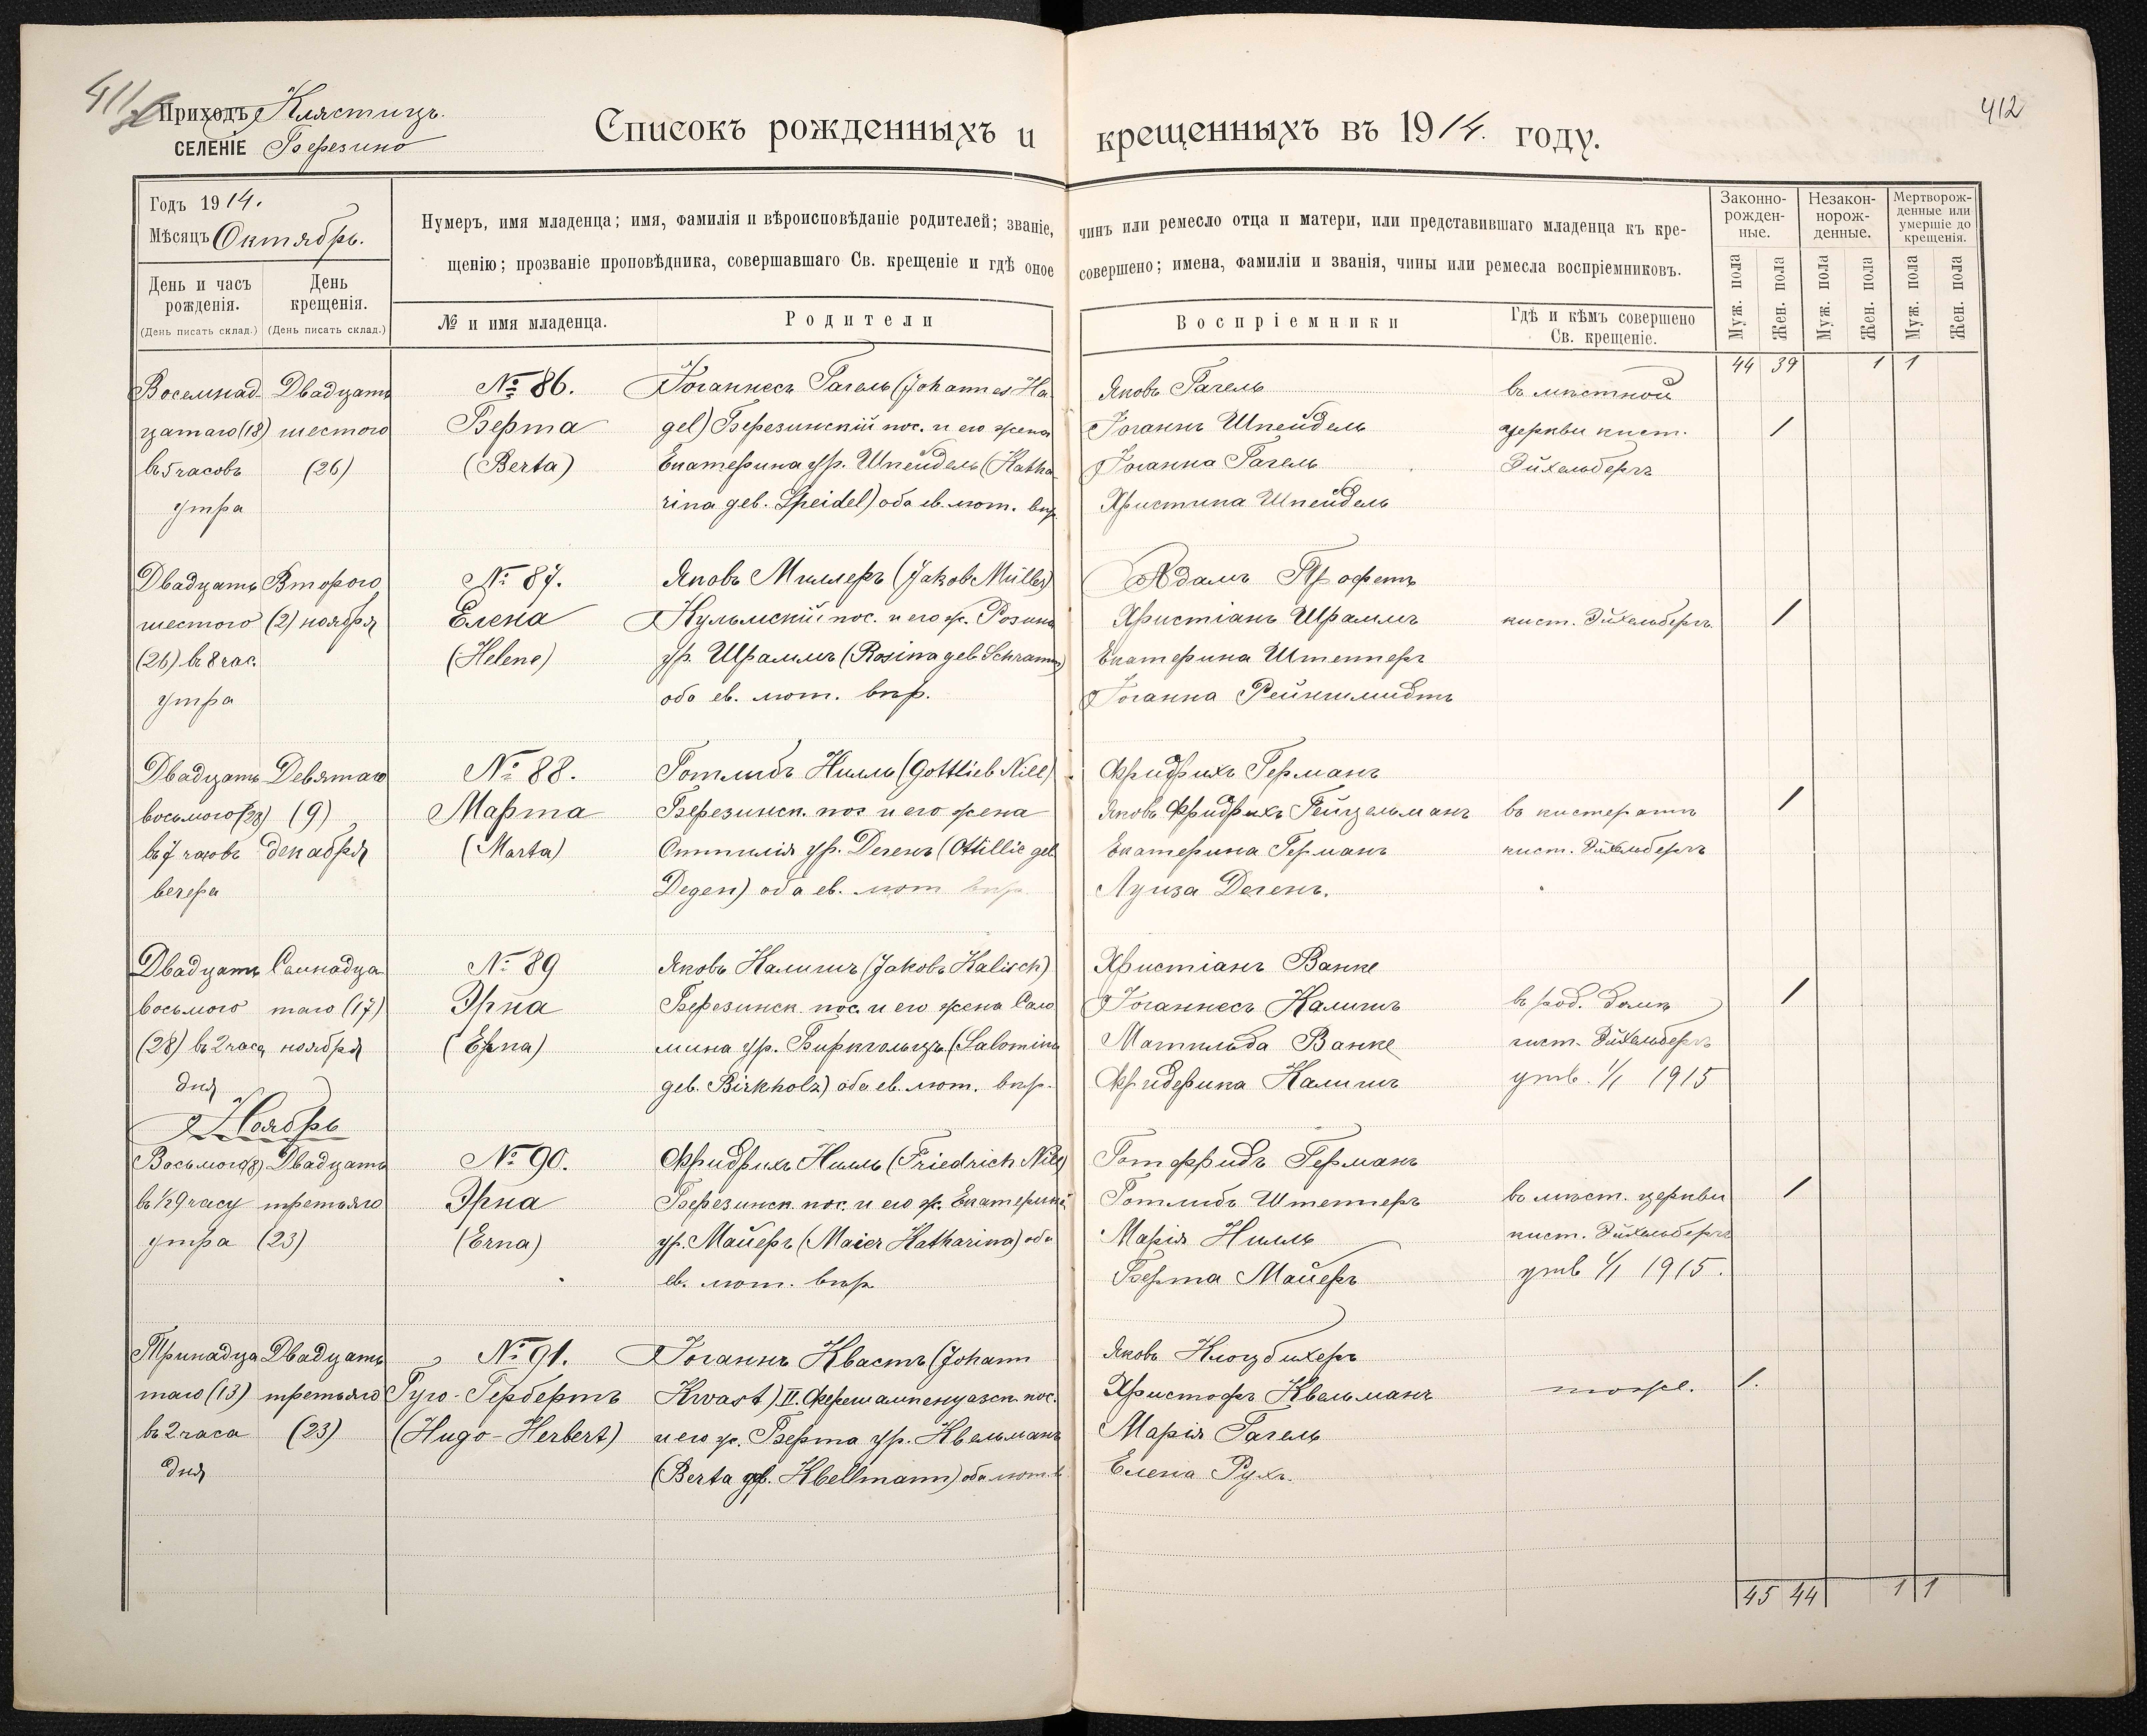 411
Приходъ Клястицъ.
СЕЛЕНІЕ Березино
Списокъ рожденныхъ и крещенныхъ въ 1914. году.
412
Годъ 1914.
Мѣсяцъ Октябрь.
День и часъ рожденія.
(День писать склад.)
День крещенія.
(День писать склад.)
Нумеръ, имя младенца; имя, фамилія и вѣроисповѣданіе родителей; званіе, чинъ или ремесло отца и матери, или представившаго младенца къ кре-
щенію; прозваніе проповѣдника, совершавшаго Св. крещеніе и гдѣ оное совершено; имена, фамиліи и званія, чины или ремесла воспріемниковъ.
№ и имя младенца.
Родители
Воспріемники
Гдѣ и кѣмъ совершено Св. крещеніе.
Законно-рожден-ные.
Незакон-норож-денные.
Мертворож-денные или умершіе до крещенія.
Муж. пола
Жен. пола
Муж. пола
Жен. пола
Муж. пола
Жен. пола
44 39 1 1
Восемнад-
цатаго (18)
въ 5 часовъ
утра
Двадцать
шестого
(26)
№ 86.
Берта
(Berta)
Іоганнесъ Гагель (Johannes Ha
gel) Березинскій пос. и его жена
Екатерина ур. Шпейдель (Katha
rina geb. Speidel) оба ев. лют. вѣр.
Яковъ Гагель
Іоганнъ Шпейдель
Іоганна Гагель
Христина Шпейдель
въ мѣстной
церкви кист.
Эйхельбергъ
/
Двадцать
шестого
(26) въ 8 час.
утра
Второго
(2) ноября
№ 87.
Елена
(Helene)
Яковъ Миллеръ (Jakob Müller)
Кульмскій пос. и его ж. Розина
ур. Шраммъ (Rosina geb Schramm)
оба ев. лют. вѣр.
Адамъ Профетъ
Христіанъ Шраммъ
Екатерина Штепперъ
Іоганна Рейншмидтъ
кист. Эйхельбергъ
/
Двадцать
восьмого (28)
въ 7 часовъ
вечера
Девятаго
(9)
декабря
№ 88.
Марта
(Marta)
Готлибъ Нилль (Gottlieb Nill)
Березинск. пос и его жена
Оттилія ур. Дегенъ (Ottillie geb
Degen) оба ев. лют вѣр.
Фридрихъ Германъ
Яковъ Фридрихъ Гейцельманъ
Екатерина Германъ
Луиза Дегенъ.
въ кистератѣ
кист. Эйхельбергъ
/
Двадцать
восьмого
(28) въ 2 часа
дня
Семнадца
таго (17)
ноября
№ 89
Эрна
(Erna)
Яковъ Калишъ (Jakobъ Kalisch)
Березинск пос. и его жена Сало
мина ур. Биркгольцъ (Salomina
geb. Birkholz) оба ев. лют. вѣр.
Христіанъ Ванке
Іоганнесъ Калишъ
Матильда Ванке
Фридерика Калишъ
въ род. домѣ
кист. Эйхельбергъ
утв. 1/1 1915
/
Ноябрь
Восьмого (8)
въ ½ 9 часу
утра
Двадцать
третьяго
(23)
№ 90.
Эрна
(Erna)
Фридрихъ Нилль (Friedrich Nill)
Березинск. пос. и его ж. Екатерина
ур. Майеръ (Maier Katharina) оба
ев. лют. вѣр
Готфридъ Германъ
Готлибъ Штепперъ
Марія Нилль
Берта Майеръ
въ мѣст. церкви
кист. Эйхельбергъ
утв 1/1 1915.
/
Тринадца
таго (13)
въ 2 часа
дня
Двадцать
третьяго
(23)
№ 91.
Гуго-Гербертъ
(Hugo-Herbert)
Іоганнъ Квастъ (Johann
Kwast) II. Фершампенуазск. пос.
и его ж. Берта ур. Квельманъ
(Berta geb. Kwellmann) оба лют. в.
Яковъ
Христофъ Квельманъ
Марія Гагель
Елена Рухъ.
тоже.
/.
45 44 1 1